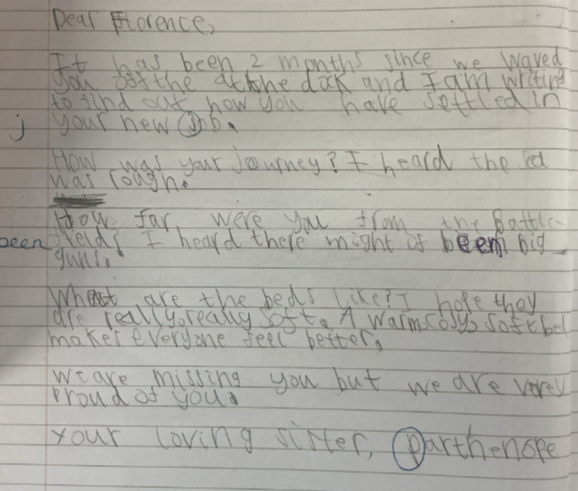 Dear Florence,
It has been 2 months since we waved
you off the at the dock and I am writing
to find out how you have settled in
j your new job.
How was your journey? I heard the sea
was rough.
How far were you from the Battle
been field? I heard there might of been big
guns.
What are the beds like? I hope they
are really, really soft. A warm, cosy, soft bed
makes everyone feel better.
we are missing you but we are very
Proud of you.
your loving sister, parthenope